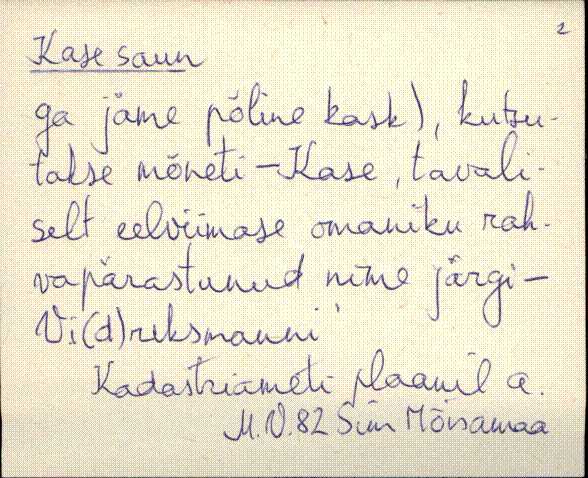 2
Kase saun
ga jäme põline kask), kutsu-
takse mõneti – Kase, tavali-
selt eelviimase omaniku rah-
vapärastunud nime järgi –
Vi(d)riksmanni
Kadastriameti plaanil a.
M.V.82 Siim Mõisamaa